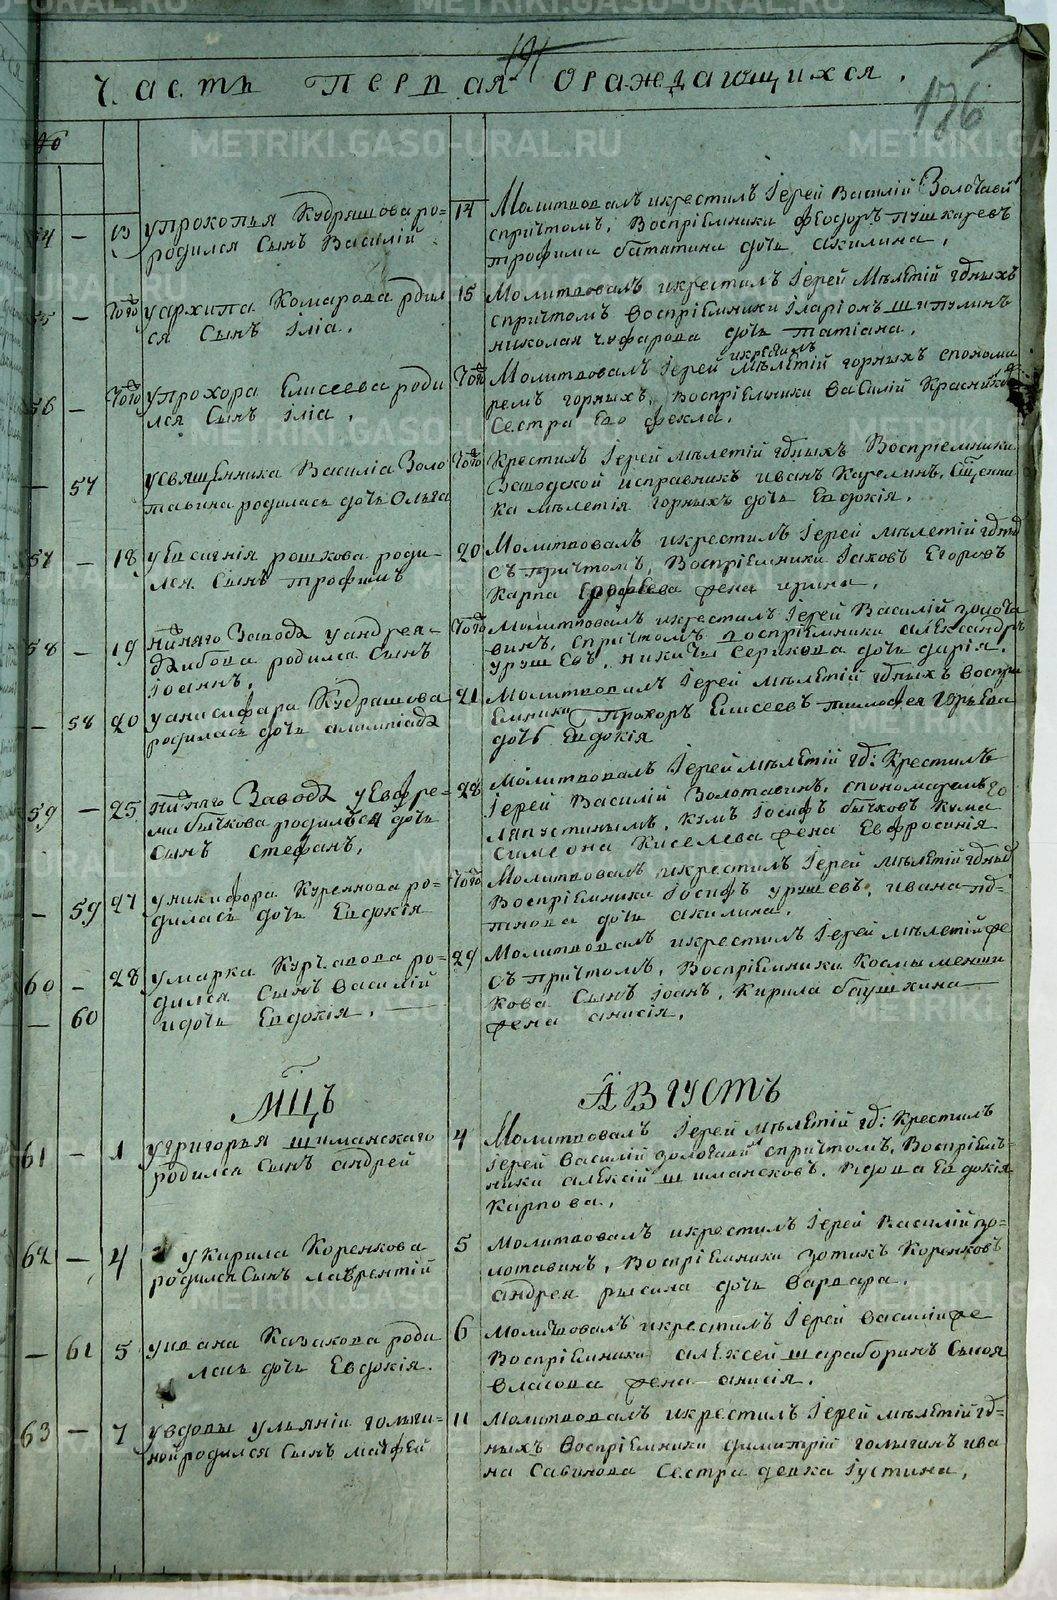 191
Часть первая ораждающихся.
176
№
54 — 13 упрокопья Кудряшова ро=
родился Сынъ Василій
14 Молитвовалъ икрестилъ Іерей Василій Золотавин
спричтомъ, Воспріемники Феодоръ пушкаревъ
трофима бататина дочь акилина,
55 — того уархипа Комарова рдил
ся Сынъ Іліа,
15 Молитвовалъ икрестилъ Іерей Мѣлетій гдныхъ
спричтомъ воспріемники Іларіонъ шипулинъ
николая чуфарова дочь татіана,
56 — того упрохора Елисеева роди
лся Сынъ іліа,
того Молитвовалъ икрестилъ Іерей Мѣлетій горныхъ спонома
ремъ горных, Воспріемники Василій Красник
Сестра Его фекла,
— 57 усвящЕнника Василіа Золо
тавина родилась дочь Ольга
того Крестилъ Іерей мѣлетій гдныхъ Воспріемники
Заводской исправникъ иванъ Карелинъ, Сщенни
ка мѣлетія горныхъ дочь Евдокія,
57 — 18 уЕвсигнія рошкова роди=
лся Сынъ трофимъ
20 Молитвовалъ икрестилъ Іерей мѣлетій гд
Съ причтомъ, Воспріемники Іаковъ Егоровъ
Карпа Ерофеева жена ирина,
58 — 19 Завода уандрея=
родился Сынъ
іоаннъ,
того Молитвовалъ икрестилъ Іерей Василій золота
винъ, спричтомъ воспріемники александръ
урушевъ, никиты Серикова дочь дарія,
— 58 20 уанисифора Кудрашова
родилась дочь алимпіада
21 Молитвовалъ Іерей мѣлетій гдныхъ воспри
Емники Прохоръ Елисеевъ тимофея
дочь Евдокія
59 — 25 Завода уЕвфре=
ма бычкова родился дочь
Сынъ Стефанъ,
28 Молитвовалъ Іерей мѣлетій гд: Крестилъ
Іерей Василій Золотавинъ, спономаремъ
ляпустинымъ, Кумъ Іосифъ бычковъ Кума
Симеона Киселева жена Евфросинія
— 59 27 уникифора Куренкова ро=
дилась дочь Евдокія
того Молитвовалъ икрестилъ Іерей мѣлетій гдныхъ
Воспріемники Іосифъ урушевъ, ивана пл=
тнова дочь акилина,
60 — 28 умарка Курчавова ро=
дился Сынъ Василій
— 60 идочь Евдокія. —
29 Молитвовалъ икрестилъ Іерей мѣлетій же
Съ причтомъ, Воспріемники Космы менши
кова Сынъ іоан, Кирила баушкина
жена анисія,
Мцъ Августъ
61 — 1 угригорья шиманскаго
родился Сынъ андрей
4 Молитвовалъ Іерей мѣлетій гд: Крестилъ
Іерей Василій золотавин спричтомъ, Воспріем=
ники алексій шимансковъ, вдова Евдокія
Карпова,
62 — 4 укирила Коренкова
родился Сынъ лаврентій
5 Молитвовалъ икрестилъ Іерей Василій зо=
лотавинъ, Воспріемники Зотикъ Коренковъ
андрея рысила дочь Варвара,
— 61 5 уивана Казакова роди
лась дочь Евдокія.
6 Молитвовалъ икрестилъ Іерей Василій же
Воспріемники алексей шараборинъ
Власова жена анисія,
63 — 7 увдовы ульяніи голыги=
ной родился Сынъ матфей
11 Молитвовалъ икрестилъ Іерей мѣлетій гд=
ныхъ Воспріемники димитрій голыгинъ ива
на Савинова Сестра девка іустина,